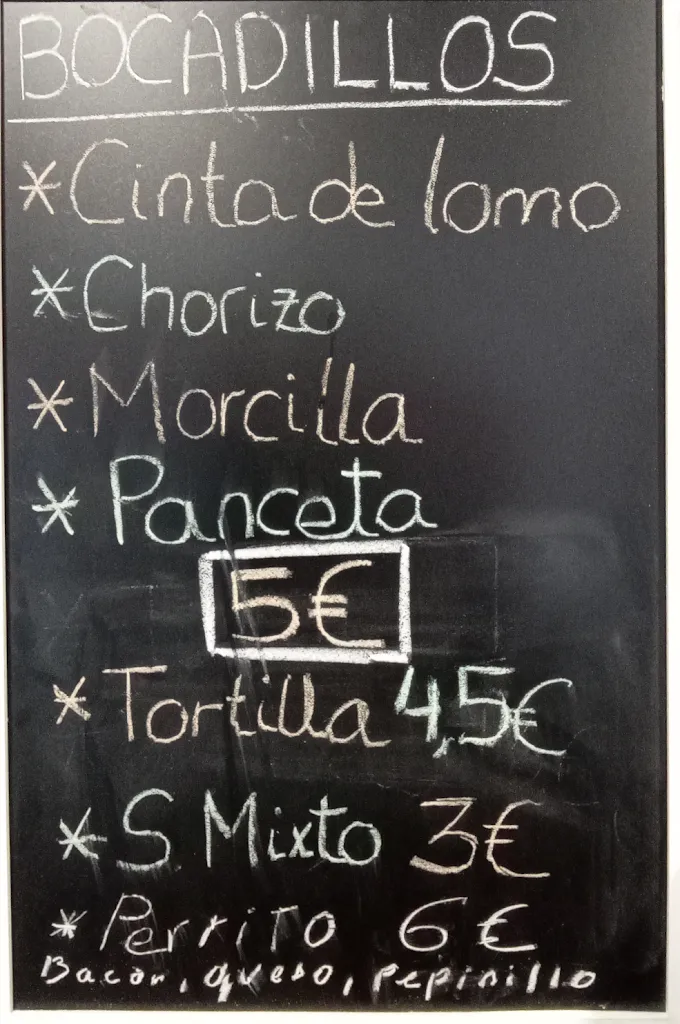 BOCADILLOS
* Cinta de lomo
* Chorizo
* Morcilla
* Panceta
5€
* Tortilla 4,5€
* S. Mixto 3€
* Perrito 6€
Bacon, queso, pepinillo